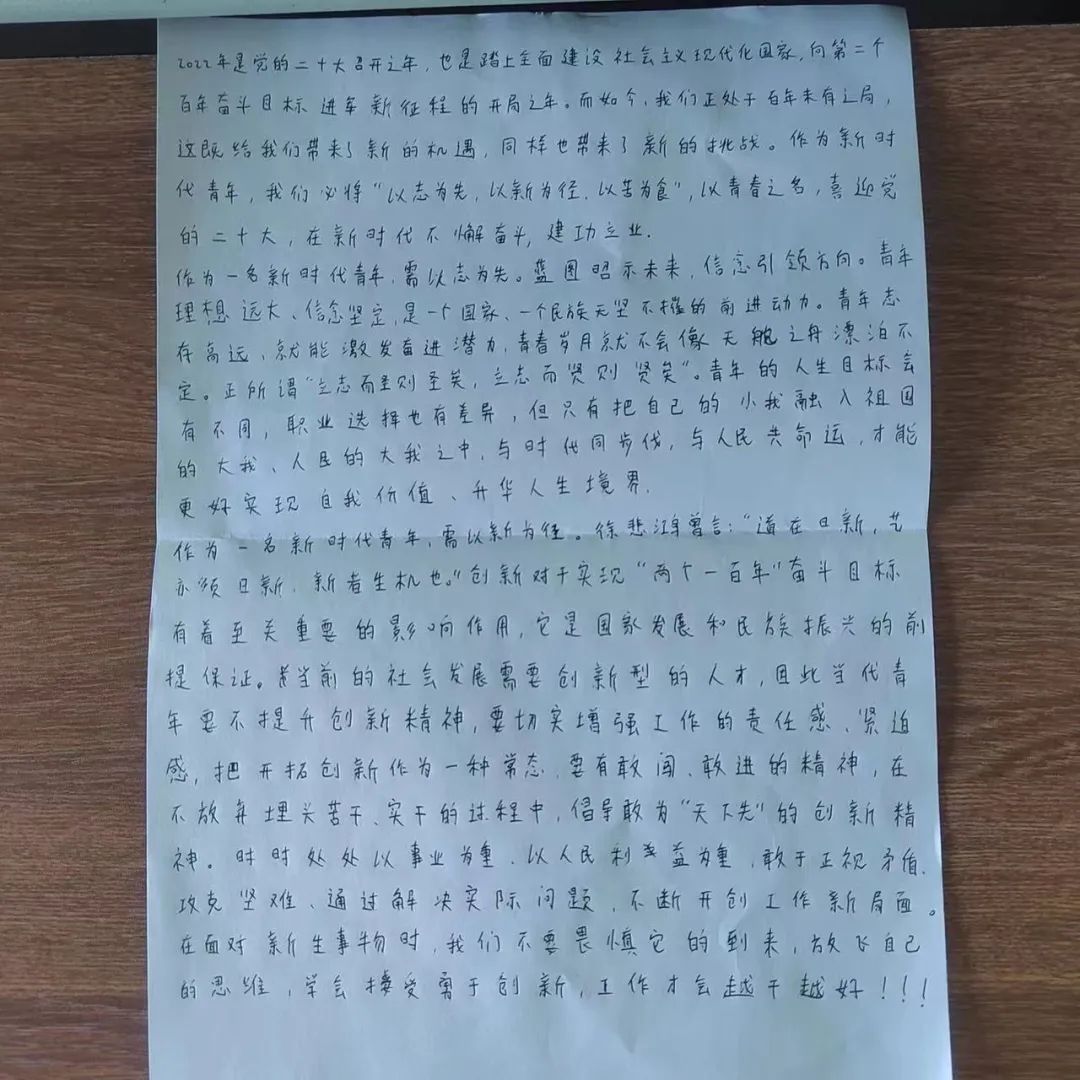 2022年是党的二十大召开之年,也是踏上全面建设社会主义现代化国家,向第二个
百年奋斗目标进军新征程的开局之年。而如今,我们正处于百年未有之局,
这既给我们带来了新的机遇,同样也带来了新的挑战。作为新时
代青年,我们必将“以志为先,以新为径,以苦为食”,以青春之名,喜迎党
的二十大,在新时代不懈奋斗,建功立业.
作为一名新时代青年,需以志为先。蓝图昭示未来,信念引领方向。青年
理想远大、信念坚定,是一个国家、一个民族无坚不摧的前进动力。青年志
存高远、就能激发奋进潜力,青春岁月就不会像无舵之舟漂泊不
定。正所谓“立志而圣则圣矣,立志而贤则贤矣”。青年的人生目标会
有不同,职业选择也有差异,但只有把自己的小我融入祖国
的大我、人民的大我之中,与时代同步伐,与人民共命运,才能
更好实现自我价值、升华人生境界.
作为一名新时代青年,需以新为径。徐悲鸿曾言:“道在日新,艺
亦须日新,新者生机也。”创新对于实现“两个一百年”奋斗目标
有着至关重要的影响作用,它是国家发展和民族振兴的前
提保证。当前的社会发展需要创新型的人才,因此当代青
年要不提升创新精神,要切实增强工作的责任感、紧迫
感,把开拓创新作为一种常态,要有敢闯、敢进的精神,在
不放弃埋头苦干、实干的过程中,倡导敢为“天下先”的创新精
神。时时处处以事业为重、以人民利益为重,敢于正视矛盾.
攻克坚难、通过解决实际问题,不断开创工作新局面。
在面对新生事物时,我们不要畏惧它的到来,放飞自己
的思维,学会接受勇于创新,工作才会越干越好!!!